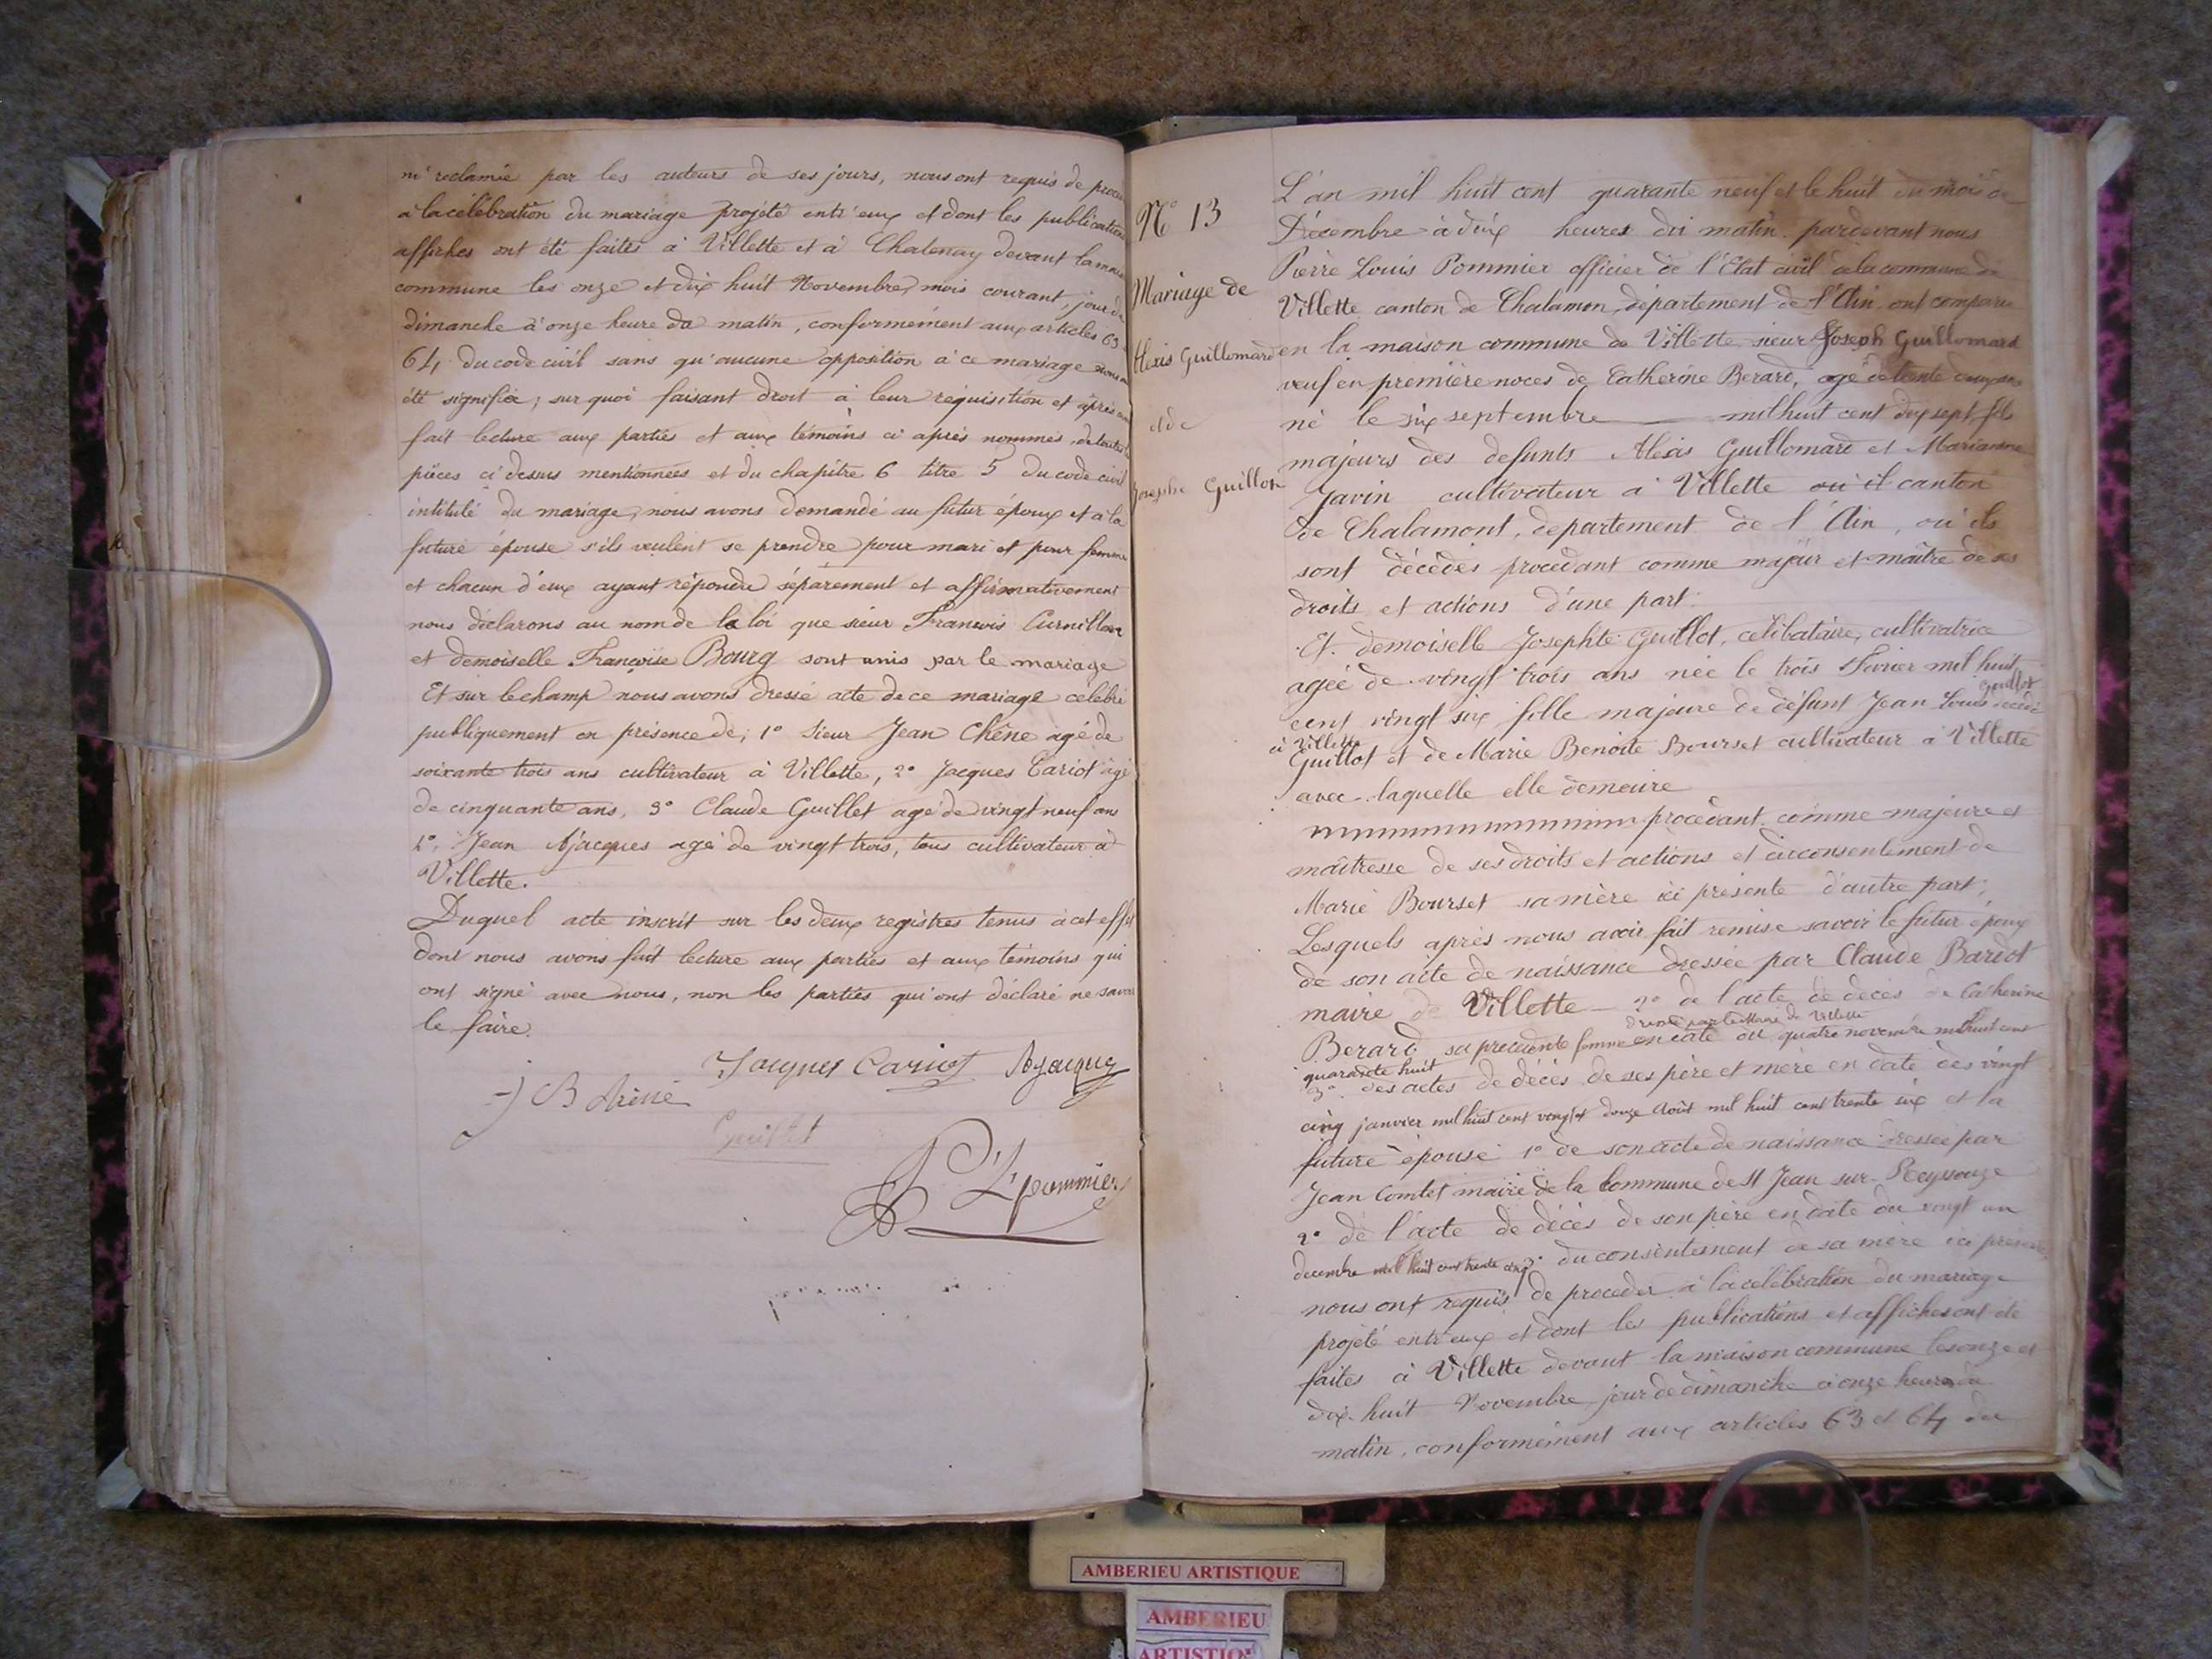 ni réclamée par les auteurs de ses jours, nous ont requis de
à la célébration du mariage projeté entr'eux et dont les publications
affiches ont été faites à Villette et à Chatenay devant la
commune les onze et dix huit Novembre mois courant, jour de
dimanche à onze heure du matin, conformément aux articles 63
64 du code civil sans qu'aucune opposition à ce mariage
été signifiée; sur quoi faisant droit à leur réquisition et après
fait lecture aux parties et aux témoins ci après nommés, de toutes
pièces ci dessus mentionnées et du chapitre 6 titre 5 du code civil
intitulé du mariage, nous avons demandé au futur époux et à la
future épouse s'ils veulent se prendre pour mari et pour femme
et chacun d'eux ayant répondu séparement et affirmativement
nous déclarons au nom de la loi que sieur François Curnillon
et demoiselle Françoise Bourg sont unis par le mariage
Et sur le champ nous avons dressé acte de ce mariage célébré
publiquement en présence de; 1° Sieur Jean Chêne agé de
soixante trois ans cultivateur à Villette, 2° Jacques Cariot agé
de cinquante ans, 3° Claude Guillet agé de vingt neuf ans
Jean Ajacques agé de vingt trois, tous cultivateur à
Villette.
Duquel acte inscrit sur les deux registres tenus à cet effet
dont nous avons fait lecture aux parties et aux témoins qui
ont signé avec nous, non les parties qui ont déclaré ne savoir
le faire.
Jacques Cariot Ajacques
J B Chêne
Guillet
P L Pommier
N° 13
Mariage de
Alexis Guillomard
et de
Josephe Guillot
L'an mil huit cent quarante neuf et le huit du mois de
Décembre à dix heures du matin. pardevant nous
Pierre Louis Pommier officier de l'Etat civil de la commune de
Villette canton de Chalamon, département de l'Ain ont comparu
en la maison commune de Villette sieur Joseph Guillomard
veuf en première noces de Catherine Berard, agé de trente deux ans
né le six septembre mil huit cent dix sept fils
majeurs des defunts Alexis Guillomard et Marianne
Javin cultivateur à Villette où il canton
de Chalamont, departement de l'Ain, où ils
sont décédés procedant comme majeur et maître de ses
droits et actions d'une part.
Et demoiselle Josephte Guillot, célibataire, cultivatrice
agée de vingt trois ans née le trois Février mil huit
cent vingt six fille majeure de défunt Jean Louis Guillot décédé
à Villette
Guillot et de Marie Benoite Bourset cultivateur à Villette
avec laquelle elle demeure
procédant comme majeure et
maîtresse de ses droits et actions et du consentement de
Marie Bourset sa mère ici présente d'autre part;
Lesquels après nous avoir fait remise savoir le futur époux
de son acte de naissance dressée par Claude Bardot
maire de Villette 2° de l'acte de décès de Catherine
dressé par le Maire de Villette
Berard sa precedente femme en date du quatre novembre mil huit cent
quarante huit
3° des actes de décès de ses père et mère en date des vingt
cinq janvier mil huit cent vingt et douze Août mil huit cent trente six et la
future épouse 1° de son acte de naissance dressée par
Jean Comtet maire de la Commune de St Jean sur Reyssouze
2° de l'acte de décès de son père en date du vingt un
decembre mil huit cent trente cinq 3° du consentement de sa mère ici présente
nous ont requis de proceder à la célébration du mariage
projeté entr'eux et dont les publications et affiches ont été
faites à Villette devant la maison commune les onze et
dix huit Novembre jour de dimanche à onze heures du
matin, conformément aux articles 63 et 64 du
AMBERIEU ARTISTIQUE
AMBERIEU
ARTISTIQUE